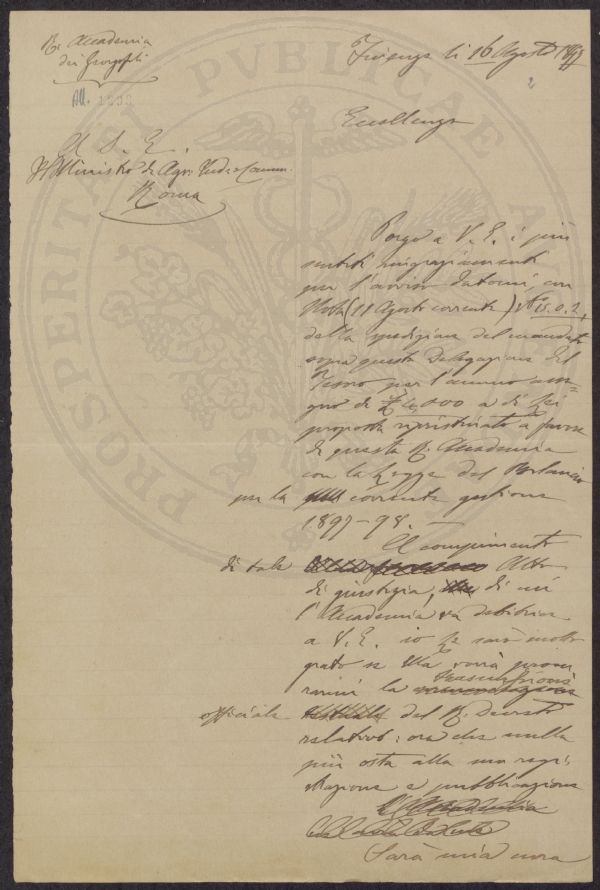 R. Accademia
dei Georgofili
All. 1898
Firenze li 16 Agosto 1897
2
Eccellenza
A S. E.
Il Ministro di Agr. Ind. e Comm.
Roma
Porgo a V. E. i più
sentiti ringraziamenti
per l'avviso datomi con
Nota (11 Agosto corrente)
della spedizione del mandato
sopra questa Delegazione del
Tesoro per l'annuo asse=
gno di £ 4,000 a di Lei
proposta ripristinato a favore
di questa R. Accademia
con la Legge del Bilancio
per la corrente gestione
1897-98. —
Al compimento
di tale Atto
di giustizia, di cui
l'Accademia va debitrice
a V. E. io Le sarò molto
grato se Ella vorrà
la trasmissione
officiale del R. Decreto
relativo: ora che nulla
più osta alla sua regi=
strazione e pubblicazione
L'Accademia
Sarà mia cura